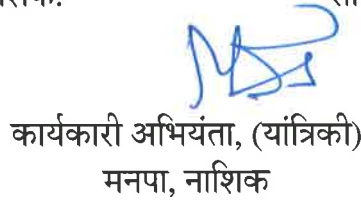 कार्यकारी अभियंता, (यांत्रिकी)
मनपा, नाशिक